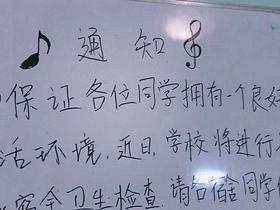 通知
保证各位同学拥有一个良好
活环境,近日,学校将进行
安全卫生检查.请各宿舍同学